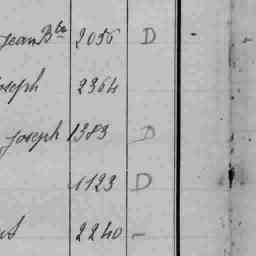 Jean Bte 2056 D
Joseph 2364
Joseph 1383 D
1123 D
2240 -